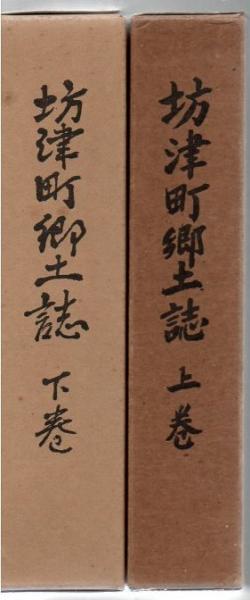 坊津町郷土誌 上巻
坊津町郷土誌 下巻